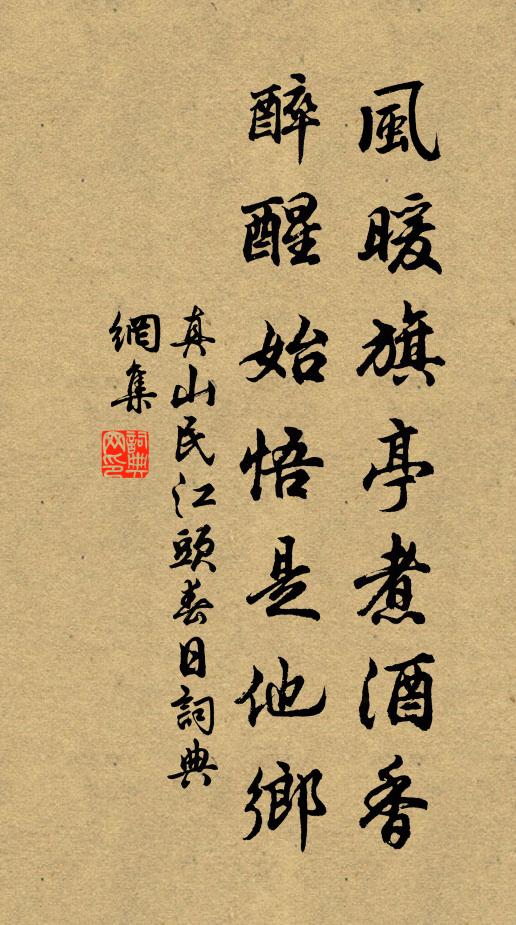 風暖旗亭煮酒香
醉醒始悟是他鄉
真山民江頭春日詞典
網集
詞典
网印